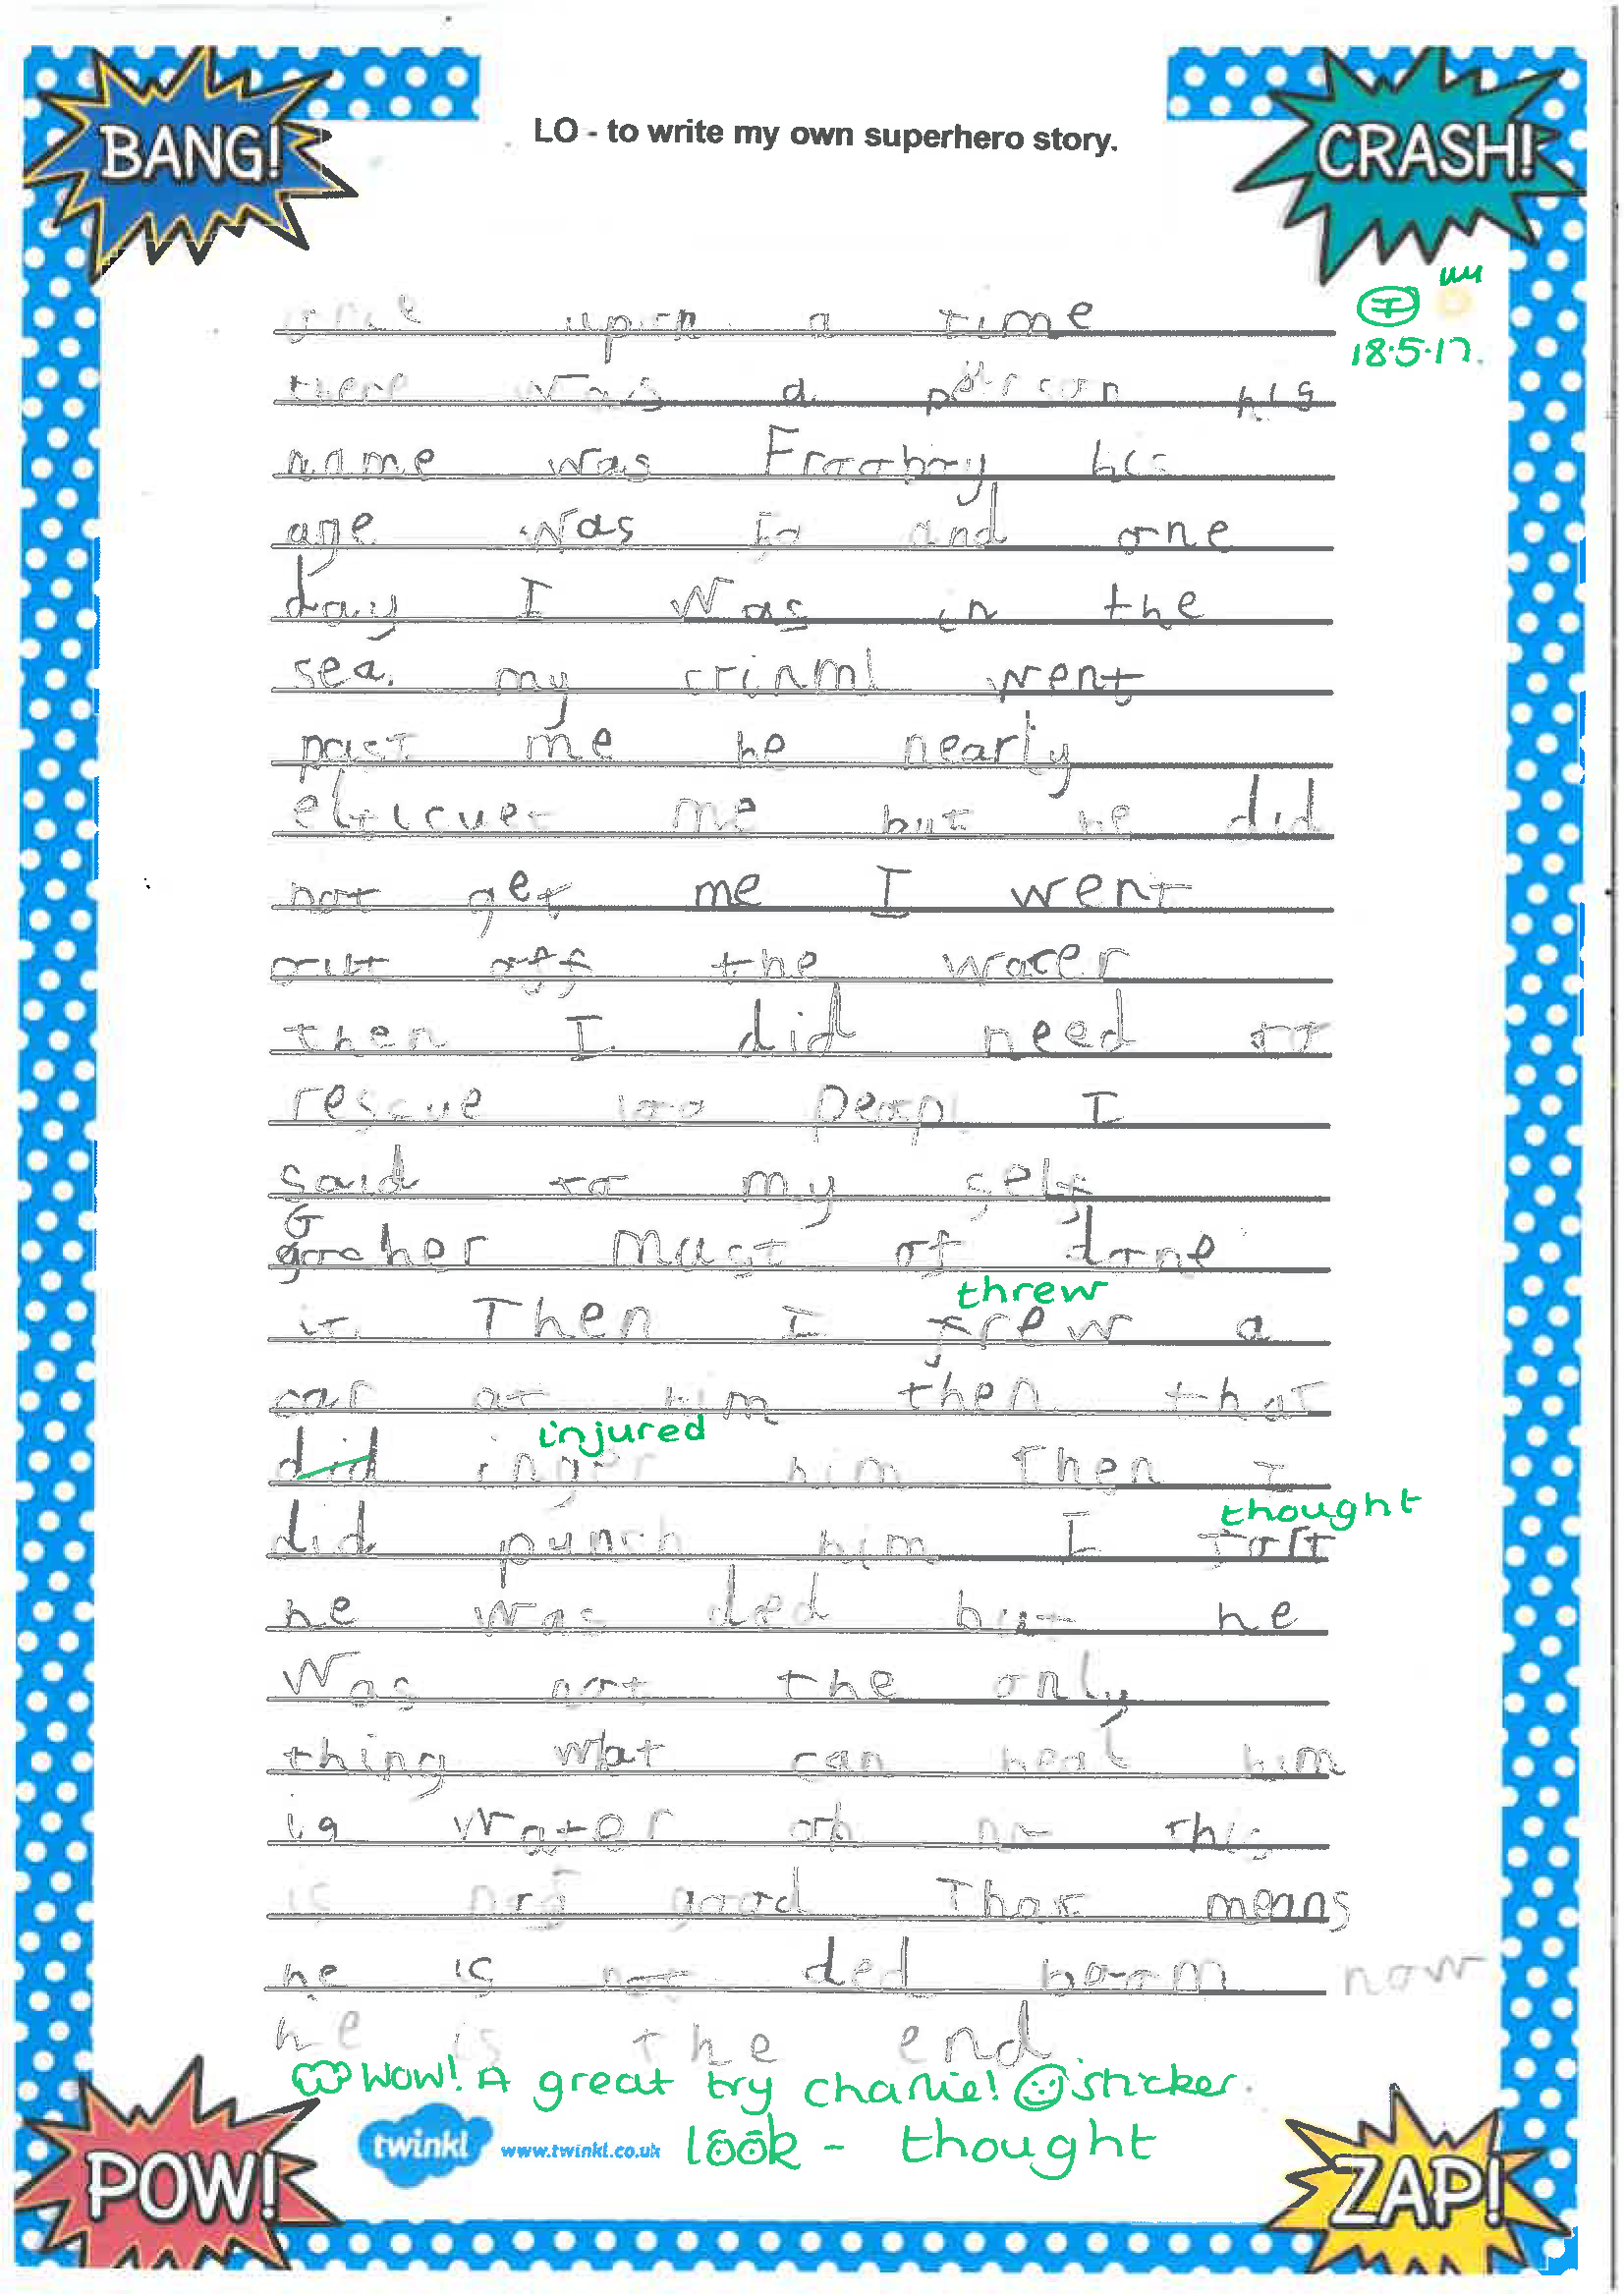 BANG!
CRASH!
LO - to write my own superhero story.
18.5.17.
upon a time
there was a person his
name was Frooboy his
age was and one
day I was in the
sea. my crinml went
past me he nearly
me but he did
not get me I went
out off the water
then I did need to
rescue 100 peopl I
said to my self
G
goocher must of done
threw
it. Then I frew a
car at him then that
injured
did inger him Then I
thought
did punch him I fort
he was ded but he
was not the only
thing what can heal him
is water oh no this
is not good That means
he is not ded boom now
he is the end
Wow! A great try Charlie! sticker.
look - thought
twinkl www.twinkl.co.uk
POW!
ZAP!